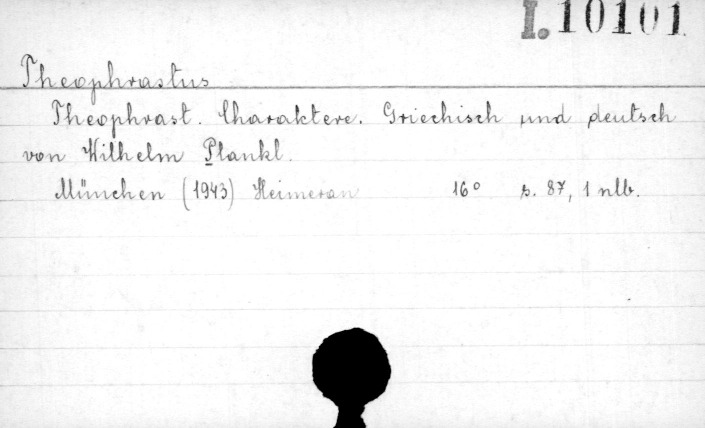 I. 10101
Theophrastus
Theophrast. Charaktere. Griechisch und deutsch
von Wilhelm Plankl.
München (1943) Heimeran 16° s. 87, 1 nlb.